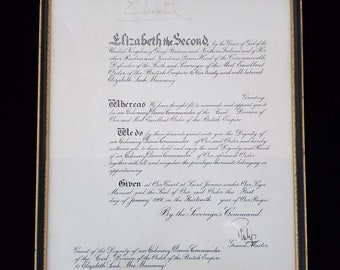 Elizabeth R
Elizabeth the Second, by the Grace of God of the
United Kingdom of Great Britain and Northern Ireland and of Her
other Realms and Territories Queen, Head of the Commonwealth,
Defender of the Faith and Sovereign of the Most Excellent
Order of the British Empire to Our trusty and well beloved
Elizabeth Leah Manning
Greeting
Whereas We have thought fit to nominate and appoint you to
be an Ordinary Dame Commander of the Civil Division of
Our said Most Excellent Order of the British Empire
We do by these presents grant unto you the Dignity of
an Ordinary Dame Commander of Our said Order and hereby
authorise you to have hold and enjoy the said Dignity and Rank
of an Ordinary Dame Commander of Our aforesaid Order
together with all and singular the privileges thereunto belonging or
appertaining
Given at Our Court at Saint James's under Our Sign
Manual and the Seal of Our said Order this First
day of January 1966 in the year of Our Reign
By the Sovereign's Command
Philip
Grand Master
Grant of the Dignity of an Ordinary Dame Commander
of the Civil Division of the Order of the British Empire
to Elizabeth Leah, Mrs Manning